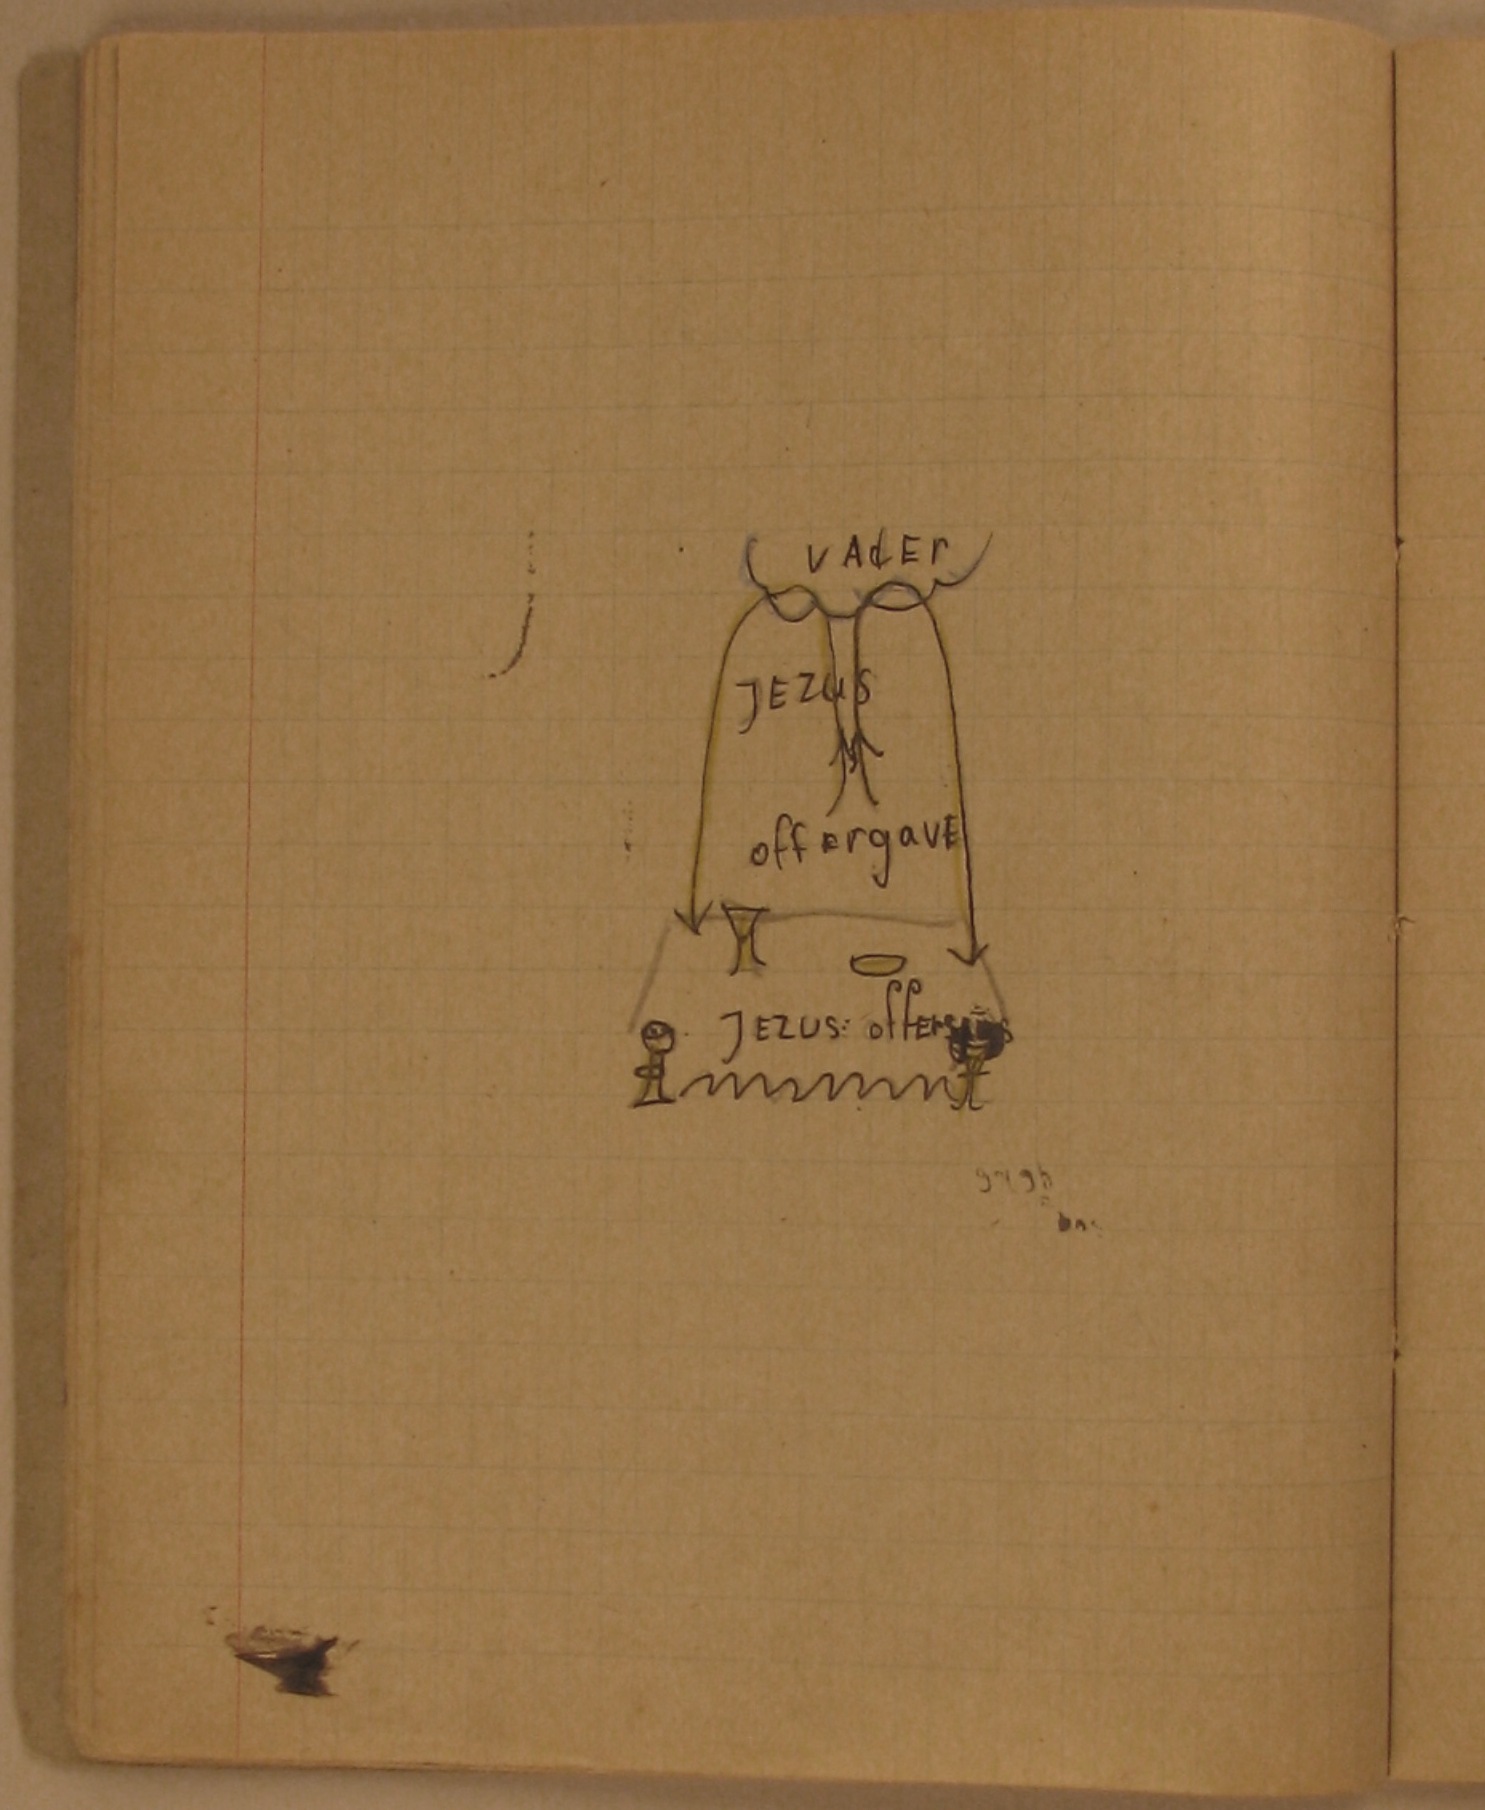 VAdEr
JEZUS
offErgavE
JEZUS: offer